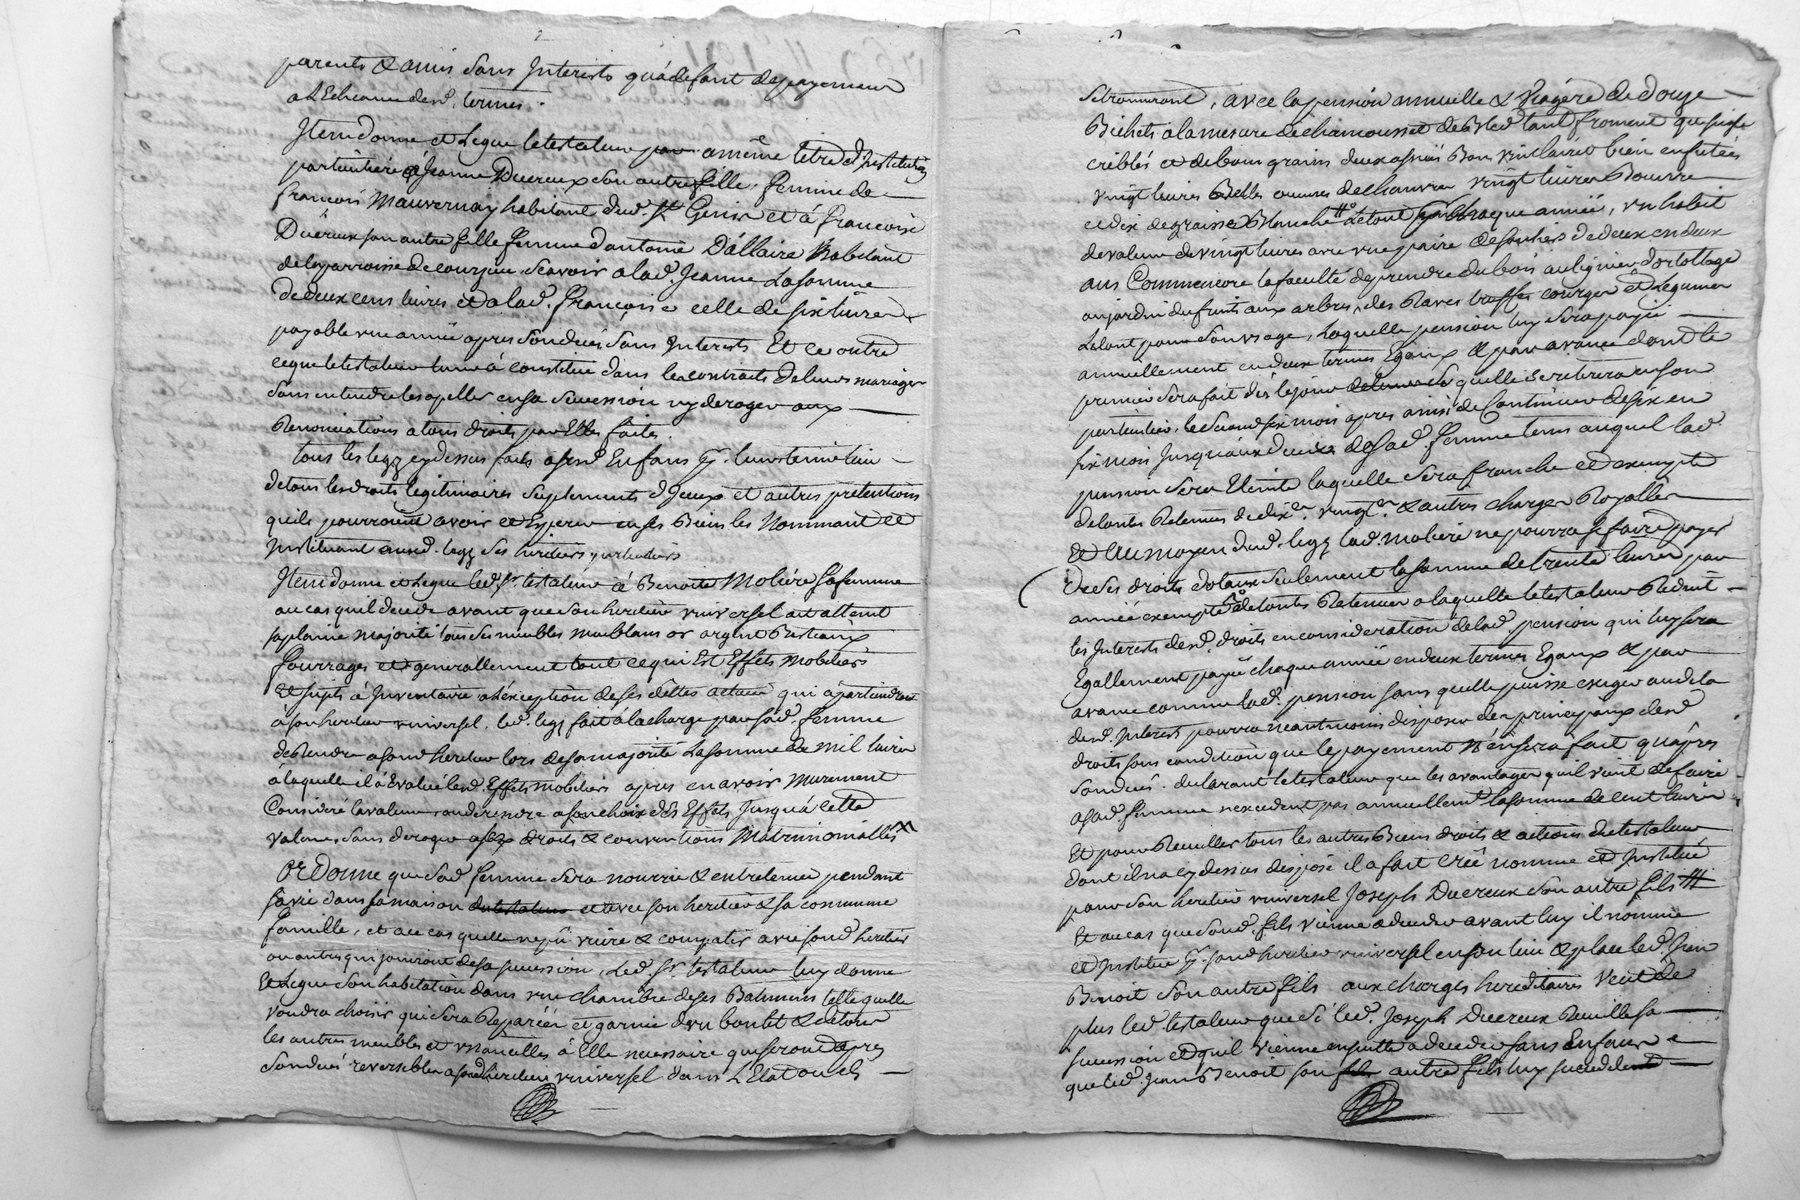 parents & amis sans Interests qu'a defaut de payement
a L'Echeance desd. termes.
Item donne et Legue le testateur a même titre d'Institution
particuliere a Jeanne Ducreux son autre fille, femme de
françois Mauvernay habitant dud. St Genis et á francoise
Ducreux son autre fille femme d'antoine Dállaire habitant
de la parroisse de courzieu Scavoir a lad. Jeanne La somme
de deux cens livres et a lad. françoise celle de six livres
payable une année apres son decés sans Interests Et ce outre
ce que le testateur leur á constitué dans les contrats de leurs mariages
sans entendre les apeller en sa succession ny deroger aux
Renonciations a tous droits par Elles faites.
tous les legz cy dessus faits a sesd. Enfans leur tenir lieu
de tous les droits legitimaires suplements d'Jceux et autres pretentions
quils pourroient avoir et Esperer en ses Biens les Nommant et
Instituant ausd. legz ses heritiers particuliers
Item donne et Legue led. Sr. testateur á Benoite Moliére sa femme
au cas quil decede avant que son heritier universel ait atteint
sa plaine majorité tous ses meubles meublans or argent Bestiaux
fourrages et generallement tout ce qui Est Effets mobiliers
Et sujets á Inventaire a l'exception de ses dettes actives qui apartiendront
á son heritier universel, led. legz fait á la charge par sad. femme
de Rendre a sond heritier lors de sa majorité La somme de mil livres
á laquelle il á Evalué lesd. Effets mobiliers apres en avoir Murement
Consideré la valeur ou de rendre a son choix des Effets Jusqu'á cette
valeur, sans deroger a ses droits & conventions Matrimonialles
Ordonne que sad. femme sera nourrie & entretenue pendant
sa vie dans sa maison du testateur et avec son heritier & sa commune
famille, et au cas quelle ne pû vivre & compatir avec sond heritier
ou autres qui jouiront de sa succession, Led. Sr. testateur luy donne
Et Legue son habitation dans une chambre de ses Batimens telle quelle
voudra choisir qui sera Reparée et garnie d'un bon lit & de tous
les autres meubles et ustancilles á Elle necessaire qui seront apres
son decés reversibles a sond heritier universel dans L'Etat ou ils
se trouveront, avec la pension annuelle & Viagére de douze
Bichets a la mesure de chamousset de Bled tant froment que seigle
criblés et de bons grains deux asnées Bon vin clairet bien enfutées
vingt livres Belles œuvres de chanvre vingt livres Beurre
et dix de graisse Blanche le tout chaque année, un habit
de valeur de vingt livres avec une paire de souliers de deux en deux
ans Comme encore la faculté de prendre du bois au ligner d'ortollage
au jardin du fruits aux arbres, des Raves truffes courges et Legumes
Le tout pour son usage, Laquelle pension luy sera payée
annuellement en deux termes Egaux & par avance dont le
premier sera fait dés le jour quelle se retirera en son
particulier, le second six mois apres ainsi de Continuer de six en
six mois Jusqu'aux decés de sad. femme tems auquel lad.
pension sera Eteinte laquelle sera franche et exempte
de toutes Retenues de dixe. vingte. & autres charges Royalles
Et au moyen dud. legz lad. moliere ne pourra se faire payer
de ses droits dotaux seulement la somme de trente livres par
année exempte de toutes Retenues a laquelle le testateur Reduit
les Interests desd. droits en consideration de lad. pension qui luy sera
Egallement payée chaque année en deux termes Egaux & par
avance comme lad. pension sans quelle puisse exiger au dela
desd. Interests pourra neantmoins disposer des principaux desd
droits sous condition que le payement N'en sera fait qu'apres
son decés. declarant le testateur que les avantages quil vient de faire
a sad. femme n'excedent pas annuellemt. la somme de cent livres
Et pour Recueillir tous les autres Biens droits & actions du testateur
dont il n'a cy dessus desposé il a fait créé nommé et Institué
pour son heritier universel Joseph Ducreux son autre fils
Et au cas que sond. fils vienne a deceder avant luy il nomme
et Institue pour son heritier universel en son lieu & place led. Jean
Benoit son autre fils aux charges hereditaires Veut de
plus led. testateur que si led. Joseph Ducreux Recueille sa
succession et quil vienne ensuitte a deceder sans Enfans
que led. Jean Benoit son autre fils luy succede